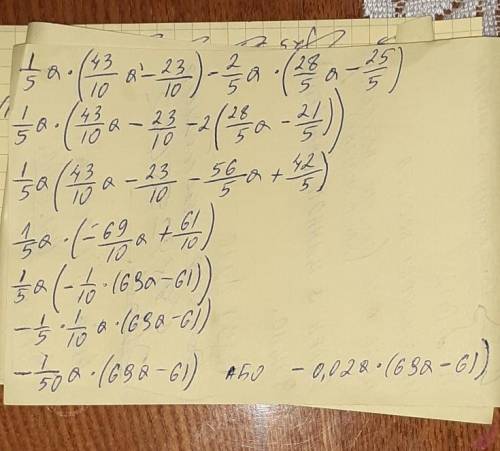 1/5 a · (43/10 a - 23/10) - 2/5 a · (28/5 a - 25/5)
1/5 a · (43/10 a - 23/10 - 2(28/5 a - 21/5))
1/5 a (43/10 a - 23/10 - 56/5 a + 42/5)
1/5 a · (-69/10 a + 61/10)
1/5 a (-1/10 · (69a - 61))
-1/5 · 1/10 a · (69a - 61))
-1/50 a · (69a - 61) АБО -0,02a · (69a - 61)